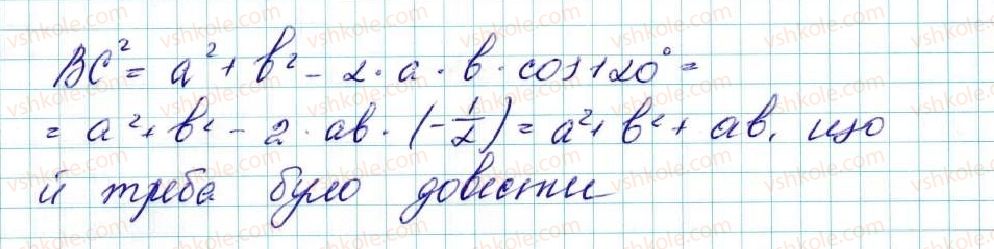 BC² = a² + b² - 2 · a · b · cos 120° =
= a² + b² - 2 · ab · (-1/2) = a² + b² + ab, що
й треба було довести